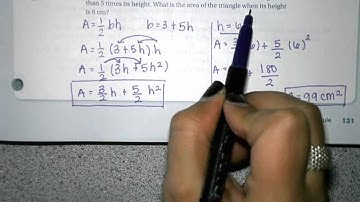 than 5 times its height. What is the area of the triangle when its height
is 6 cm?
A = 1/2 bh
b = 3 + 5h
A = 1/2 (3 + 5h) h
A = 1/2 (3h + 5h²)
A = 3/2 h + 5/2 h²
h = 6
A = 6) + 5/2 (6)²
+ 180/2
= 99 cm²
131